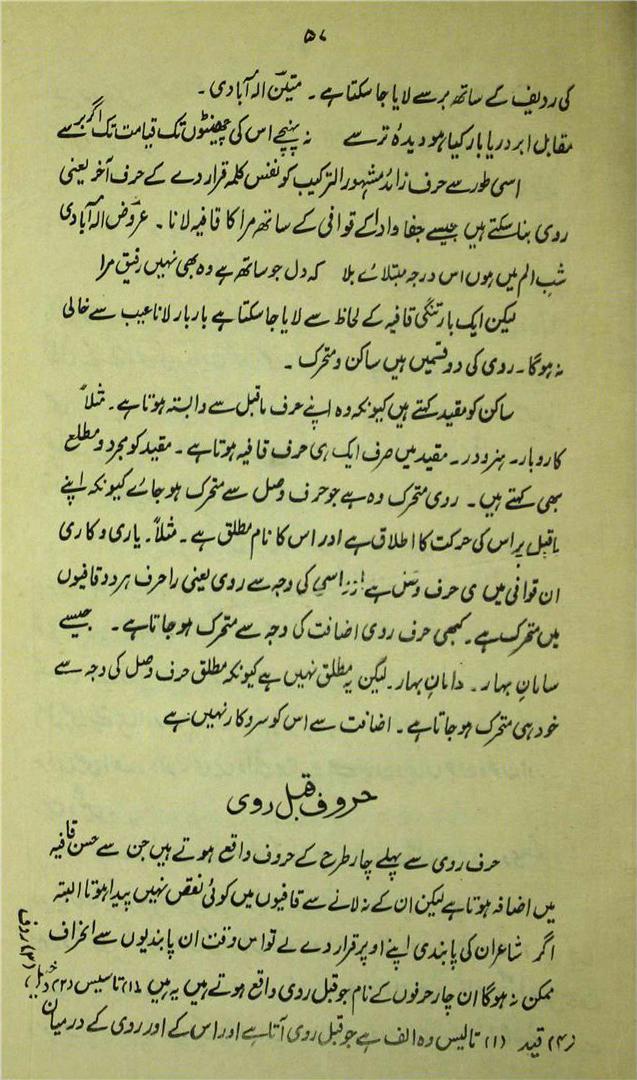 ۵۷
کی ردیف کے ساتھ برسے لایا جا سکتا ہے ۔ متینؔ الہ آبادی ۔
مقابل ابر دریا بار کیا ہو دیدہ ترسے نہ پہنچے اس کی چھینٹوں تک قیامت تک اگر برسے
اسی طور سے حرف زائد مشہور الترکیب کو نفس کلمہ قرار دے کے حرف آخر یعنی
روی بنا سکتے ہیں جیسے جفا و ادا کے قوافی کے ساتھ مرا کا قافیہ لانا ۔ عروضؔ الہ آبادی
شبِ الم میں ہوں اس درجہ مبتلائے بلا کہ دل جو ساتھ ہے وہ بھی نہیں رفیق مرا
لیکن ایک بار تنگی قافیہ کے لحاظ سے لایا جا سکتا ہے بار بار لانا عیب سے خالی
نہ ہوگا ۔ روی کی دو قسمیں ہیں ساکن و متحرک ۔
ساکن کو مقید کہتے ہیں کیونکہ وہ اپنے حرف ماقبل سے وابستہ ہوتا ہے ۔ مثلاً
کار و بار ۔ ہنر و در ۔ مقید میں صرف ایک ہی حرف قافیہ ہوتا ہے ۔ مقید کو مجرد و مطلع
بھی کہتے ہیں ۔ روی متحرک وہ ہے جو حرف وصل سے متحرک ہو جائے کیونکہ اپنے
ماقبل پر اس کی حرکت کا اطلاق ہے اور اس کا نام مطلق ہے ۔ مثلاً ۔ یاری و کاری
ان قوافی میں ی حرف وصل ہے اور اسی کی وجہ سے روی یعنی را حرف ہر دو قافیوں
میں متحرک ہے ۔ کبھی حرف روی اضافت کی وجہ سے متحرک ہو جاتا ہے ۔ جیسے
سامانِ بہار ۔ دامانِ بہار ۔ لیکن یہ مطلق نہیں ہے کیونکہ مطلق حرف وصل کی وجہ سے
خود ہی متحرک ہو جاتا ہے ۔ اضافت سے اس کو سروکار نہیں ہے
حروف قبل روی
حرف روی سے پہلے چار طرح کے حروف واقع ہوتے ہیں جن سے حسن قافیہ
میں اضافہ ہوتا ہے لیکن ان کے نہ لانے سے قافیوں میں کوئی نقص نہیں پیدا ہوتا البتہ
اگر شاعر ان کی پابندی اپنے اوپر قرار دے لے تو اس وقت ان پابندیوں سے انحراف
ممکن نہ ہوگا ان چار حرفوں کے نام جو قبل روی واقع ہوتے ہیں یہ ہیں (۱) تاسیس (۲) دخیل (۳) ردف
(۴) قید (۱) تاسیس وہ الف ہے جو قبل روی آتا ہے اور اس کے اور روی کے درمیان